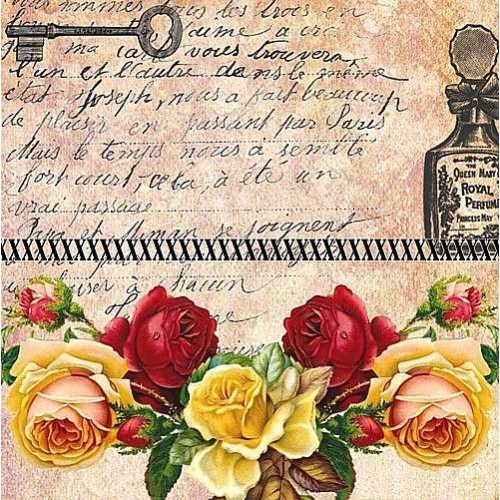 nous sommes tous les trois en
j'aime a croi
ma carte vous trouvera
l'un et l'autre dans le même
état Joseph, nous a fait beaucoup
de plaisir en passant par Paris
Mais le temps nous a semblé
fort court, cela a été un
vrai passage
Papa et Maman se joignent
à chacun
QUEEN MARY
ROYAL
PERFUME
PRINCESS MAY